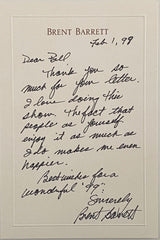 BRENT BARRETT
Feb 1, 99
Dear Bill
Thank you so
much for your letter.
I love doing this
show. The fact that
people as yourself
enjoy it as much as
I do makes me even
happier.
Best wishes for a
wonderful '99!
Sincerely
Brent Barrett